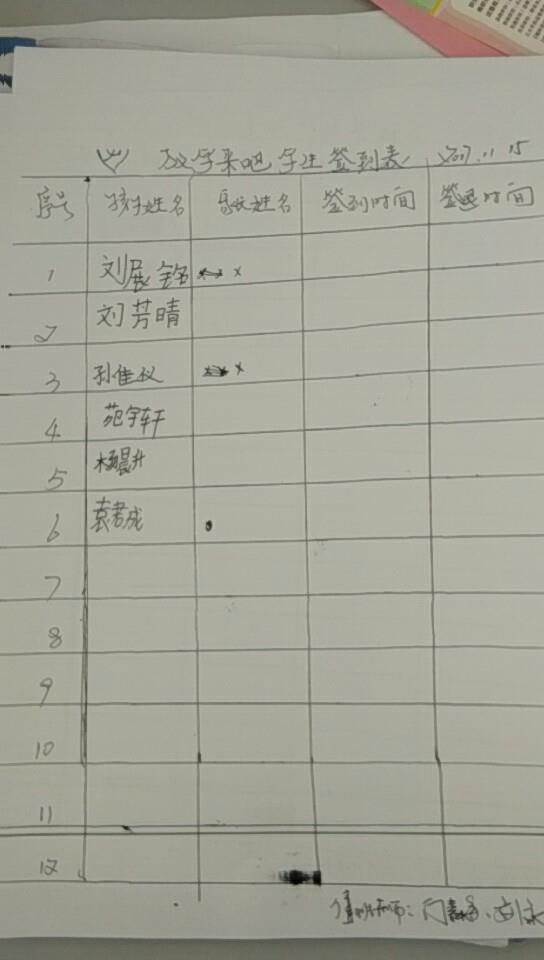 放学来吧学生签到表 2017.11.15
序号 孩子姓名 家长姓名 签到时间 签退时间
1 刘展铭 x
2 刘芳晴
3 孙佳仪 x
4 苑宇轩
5 杨晨升
6 袁君成
7
8
9
10
11
12
值班老师:闫